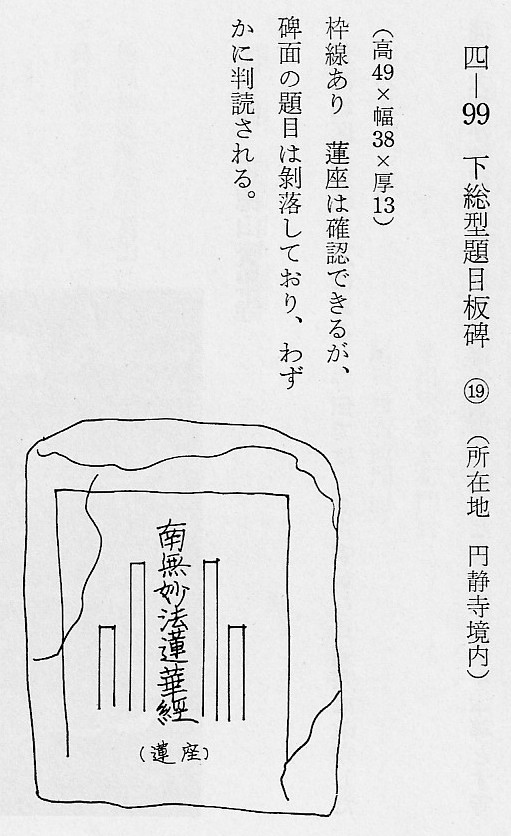 四―99 下総型題目板碑 ⑲ (所在地 円静寺境内)
(高49×幅38×厚13)
枠線あり 蓮座は確認できるが、
碑面の題目は剝落しており、わず
かに判読される。
南無妙法蓮華経
(蓮座)